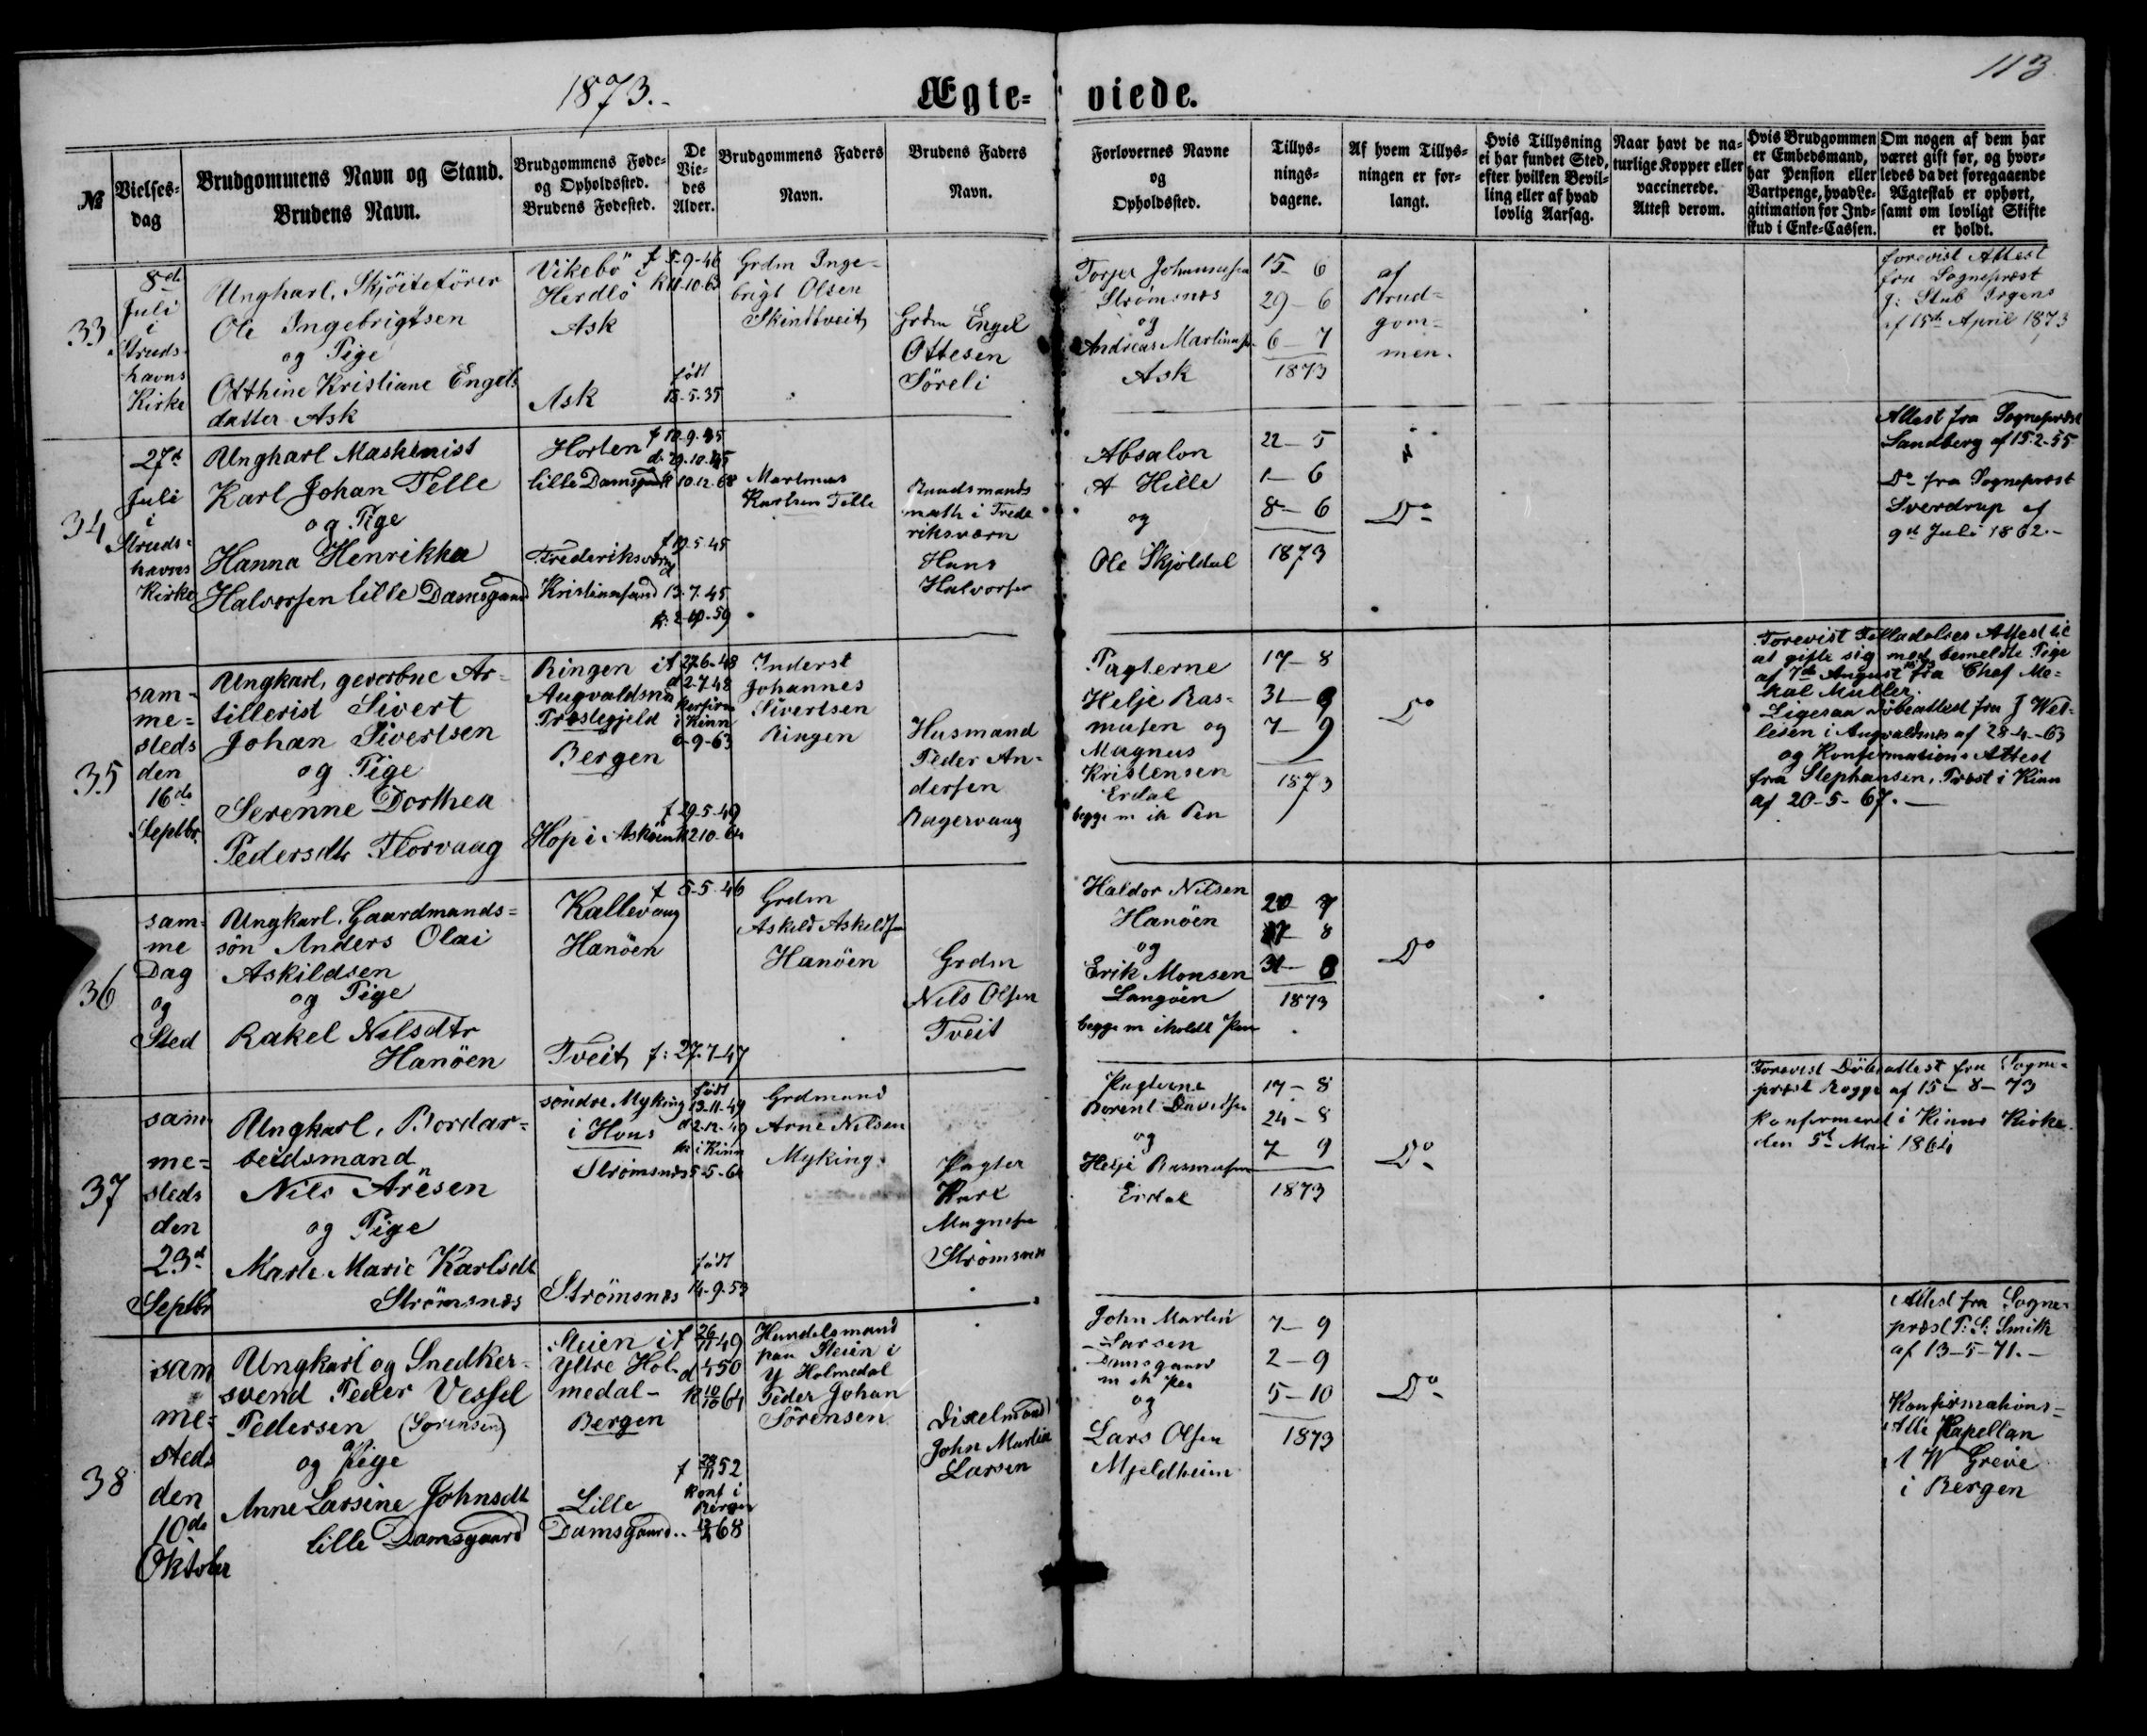 113
1873.-
Ægte=
viede.
№
Vielses-
dag
Brudgommens Navn og Stand.
Brudens Navn.
Brudgommens Føde-
og Opholdssted.
Brudens Fødested.
De
Vie-
des
Alder.
Brudgommens Faders
Navn.
Brudens Faders
Navn.
Forlovernes Navne
og
Opholdssted.
Tillys-
nings-
dagene.
Af hvem Tillys-
ningen er for-
langt.
Hvis Tillysning
ei har fundet Sted,
efter hvilken Bevil-
ling eller af hvad
lovlig Aarsag.
Naar havt de na-
turlige Kopper eller
vaccinerede.
Attest derom.
Hvis Brudgommen
er Embedsmand,
har Pension eller
Vartpenge, hvad Le-
gitimation for Ind-
skud i Enke-Cassen.
Om nogen af dem har
været gift før, og hvor-
ledes da det foregaaende
Ægteskab er ophørt,
samt om lovligt Skifte
er holdt.
33
8de
Juli
i
Struds-
havns
Kirke
Ungkarl, Skjöiteförer
Ole Ingebrigtsen
og Pige
Otthine Kristiane Engels
datter Ask
Vikebö i
Herdlö
Ask
Ask
f 5-9-46
födt
18-5-35
Grdm Inge-
brigt Olsen
Skindtveit
Grdm Engel
Ottesen
Söreli
Torger Johannesen
Strømsnes
og
Andreas Martinusen
Ask
15- 6
29- 6
6- 7
1873
af
Brud-
gom-
men.
forevist Attest
fra Sogneprest
J: Stub Irgens
af 15de April 1873
34
27de
Juli
i
Struds-
havns
Kirke
Ungkarl Maskinist
Karl Johan Telle
og Pige
Hanna Henrikka
Halvorsen lille Damsgaard
Horten
lille Damsgaard
Frederiksværn
Kristiansand
f 10-9-45
d. 29-10-45
k 10-12-68
f 19-5-45
13-7-45
Martinus
Karlsen Telle
Frede
riksværn
Hans
Halvorsen
Absalon
A Hille
og
Ole Skjöldal
22- 5
1- 6
8- 6
1873
Do
Attest fra Sogneprest
Sandberg af 15-2-55
Do fra Sogneprest
Sverdrup af
9de Juli 1862.-
35
sam-
me=
steds
den
16de
Septbr.
Ungkarl, gevorbne Ar-
tillerist Sivert
Johan Sivertsen
og Pige
Serenne Dorthea
Pedersdtr Florvaag
Ringen i
Augvaldsnæs
Præstegjeld
Bergen
Hop i Asköen
f 27-6-48
d 2-7-48
i Kinn
6-9-63
f 29-5-49
Inderst
Johannes
Sivertsen
Ringen
Husmand
Peder An-
dersen
Bagervaag
Pagterne
Helje Ras-
musen og
Magnus
Kristensen
Erdal
17- 8
31- 8
7- 9
1873
Do
Forevist Tilladelses Attest til
at gifte sig med bemeldte Pige
af 7de August fra Chef Me-
kal Müller.
Ligesaa Döbeattest fra J Wet-
lesen i Augvaldsnes af 28-4-63
og Konfirmations Attest
fra Stephansen, Prest i Kinn
af 20-5-67.-
36
sam-
me
Dag
og
Sted
Ungkarl, Gaardmands=
sön Anders Olai
Askildsen
og Pige
Rakel Nilsdtr
Hanöen
Kallevaag
Hanöen
Tveit
f 5-5-46
f: 27-7-47
Grdm
Askild Askildsen
Hanöen
Grdm
Nils Olsen
Tveit
Haldor Nilsen
Hanöen
og
Erik Monsen
Langöen
20- 7
17- 8
31- 8
1873
Do
37
sam-
me=
steds
den
23d
Septbr
Ungkarl, Bordar=
beidsmand
Nils Arnesen
og Pige
Marte Marie Karlsdt
Strömsnes
söndre Myking
i Hous
Strömsnes
Strömsnes
födt
13-11-49
d 2-12-49
k i Kinn
5-5-64
födt
14-9-53
Grdmand
Arne Nilsen
Myking.
Pagter
Karl
Magnesen
Strömsnes
Pagterne
Berent Davidsen
og
Helje Rasmusen
Erdal
17- 8
24- 8
7- 9
1873
Do
Forevist Döbeattest fra Sogne-
prest Rogge af 15-8-73
Konfirmeret i Kinns Kirke
den 5te Mai 1864
38
sam
me=
steds
den
10de
Oktober
Ungkarl og Snedker-
svend Peder Vessel
Pedersen (Sørensen)
og Pige
Anne Larsine Johnsdt
lille Damsgaard
Steien i
Yttre Hol-
medal-
Bergen
Lille
Damsgaard..
f 26/11 49
k 10/10 64
f 28/11 52
konf i
Bergen
68
Handelsmand
paa Steien i
Y Holmedal
Peder Johan
Sørensen
John Martin
Larsen
John Martin
Larsen
Damsgaard
og
Lars Olsen
Mjeldheim
7- 9
2- 9
5- 10
1873
Do
Attest fra Sogne-
prest P: S: Smith
af 13-5-71.-
Konfirmations-
Att Kapellan
A W Greve
i Bergen